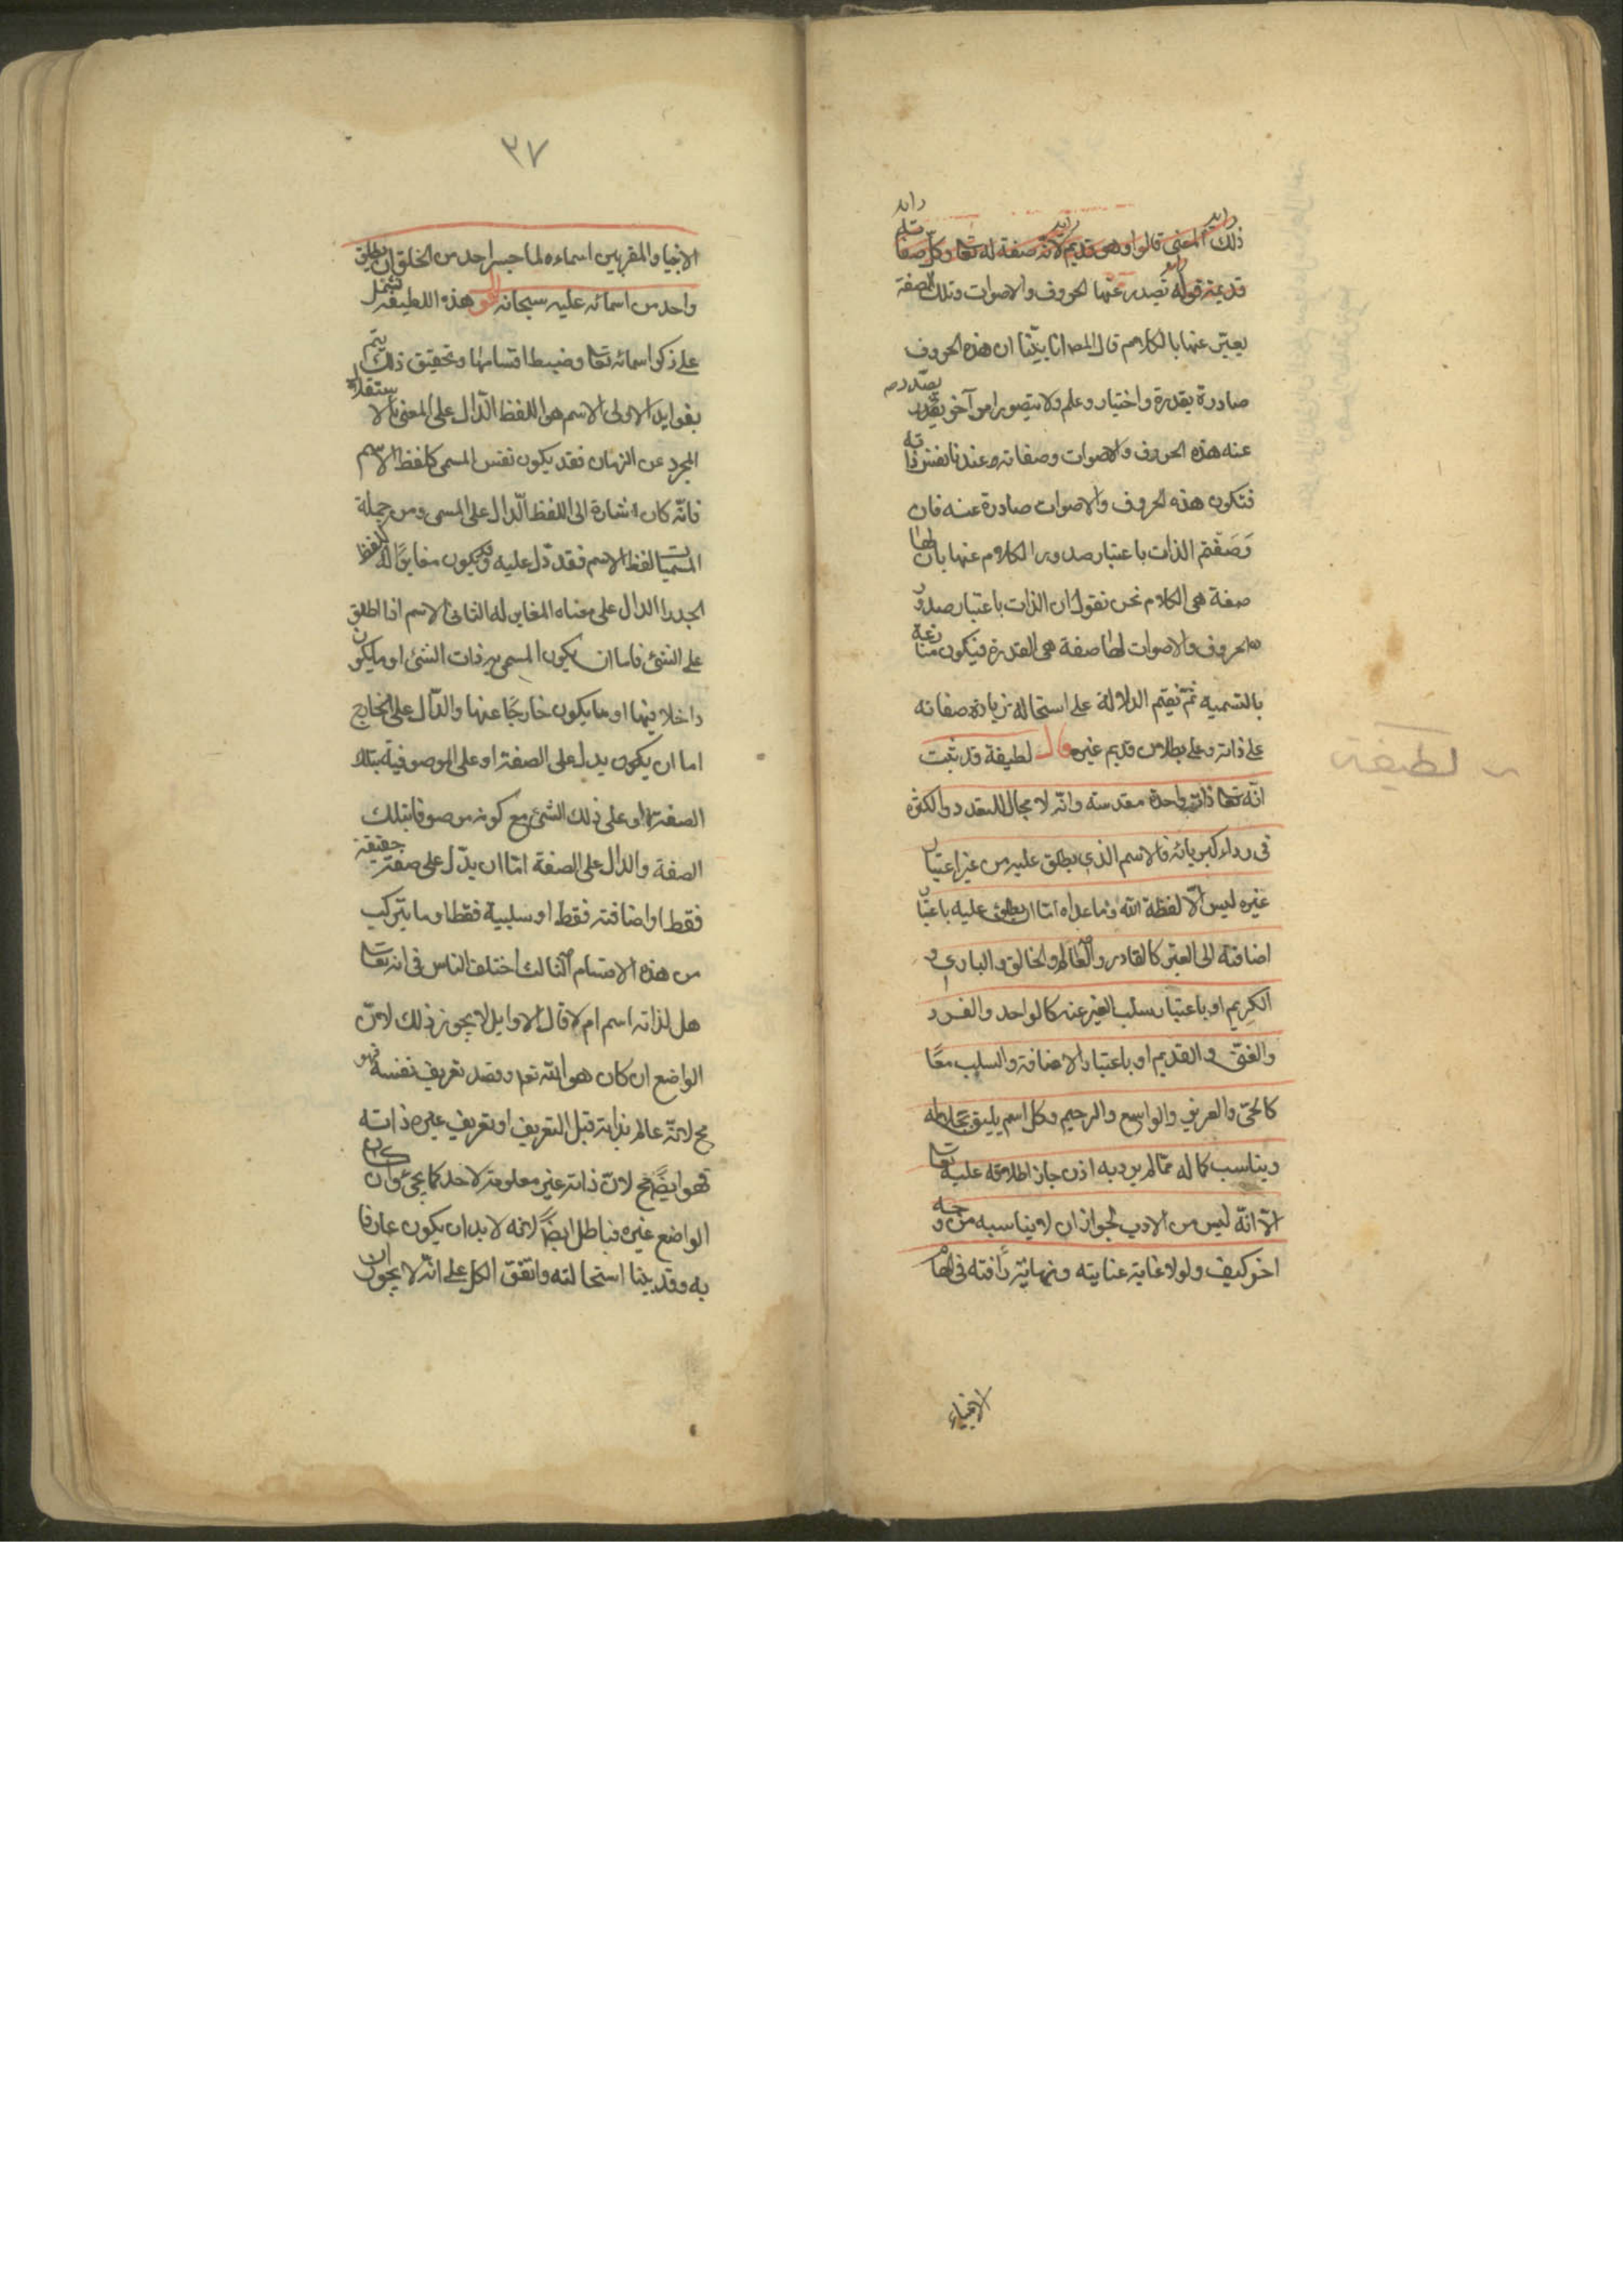 ذلك المعنى قالوا وهو قديم لانه صفة له تعا وكل صفاته
قديمة قوله تصدر عنها الحروف والاصوات وتلك الصفة
يعبّر عنها بالكلام قال المص انا بيّنا ان هذه الحروف
صادرة بقدرة واختيار وعلم ولا يتصور امر آخر يصدر
عنه هذه الحروف والاصوات وصفاته وعندنا نفس ذاته
فتكون هذه الحروف والاصوات صادرة عنه فان
وَصَفْتم الذات باعتبار صدور الكلام عنها بان لها
صفة هى الكلام نحن نقول ان الذات باعتبار صدور
الحروف والاصوات لها صفة هى القدرة فيكون منازعة
بالتسمية ثمّ نقيم الدلالة على استحالة زيادة صفاته
على ذاته وعلى بطلان قديم غيره قال لطيفة قد ثبت
انّه تعا ذات واحدة مقدسته وانّه لا مجال للتعدد والكثرة
فى رداء كبريائه فالاسم الذى يطلق عليه من غير اعتبار
غيره ليس الّا لفظة الله وما عداه امّا ان يطلق عليه باعتبار
اضافته الى الغير كالقادر والعالم والخالق والبارى و
الكريم او باعتبار سلب الغير عنه كالواحد والفرد
والغنىّ والقديم او باعتبار الاضافة والسلب معًا
كالحىّ والعزيز والواسع والرحيم وكل اسم يليق بجلاله
ويناسب كماله ممّا لم يرد به اذن جاز اطلاقه عليه تعا
الّا انّه ليس من الادب لجواز ان لا يناسبه من وجه
اخر كيف ولولا غاية عنايته ونهاية رأفته فى الهام
الانبياء
لطيفة
٣٧
الانبياء والمقربين اسماءه لما جسر احد من الخلق ان يطلق
واحد من اسمائه عليه سبحانه اقو هذه اللطيفة تشتمل
على ذكر اسمائه تعا وضبط اقسامها وتحقيق ذلك يتم
بفوايد الاولى الاسم هو اللفظ الدّال على المعنى بالاستقلال
المجرد عن الزمان فقد يكون نفس المسمى كلفظ الاسم
فانّه كان اشارة الى اللفظ الدّال على المسمى ومن جملة
المسميات لفظ الاسم فقد دّل عليه وقد يكون مغايرًا له كلفظ
الجدار الدال على معناه المغاير له الثانى الاسم اذا اطلق
على الشئ فاما ان يكون المسمى به ذات الشئ او ما يكون
داخلا فيها او ما يكون خارجًا عنها والدّال على الخارج
اما ان يكون يدل على الصفة او على الموصوفية بتلك
الصفة او على ذلك الشئ مع كونه موصوفا بتلك
الصفة والدال على الصفة امّا ان يدّل على صفة حقيقة
فقط او اضافته فقط او سلبية فقط او ما يتركب
من هذه الاقسام الثالث اختلف الناس فى انه تعا
هل لذاته اسم ام لا قال الاوايل لا يجوز ذلك لانّ
الواضع ان كان هو الله تع وقصد تعريف نفسه فهو
مح لانّه عالم بذاته قبل التعريف او تعريف غيره ذاته
فهو ايضًا مح لانّ ذاته غير معلومة لاحد كما يجئ وان كان
الواضع غيره فباطل ايضًا لانه لا بد ان يكون عارفا
به وقد بينا استحالته واتفق الكل على انّه لا يجوز ان